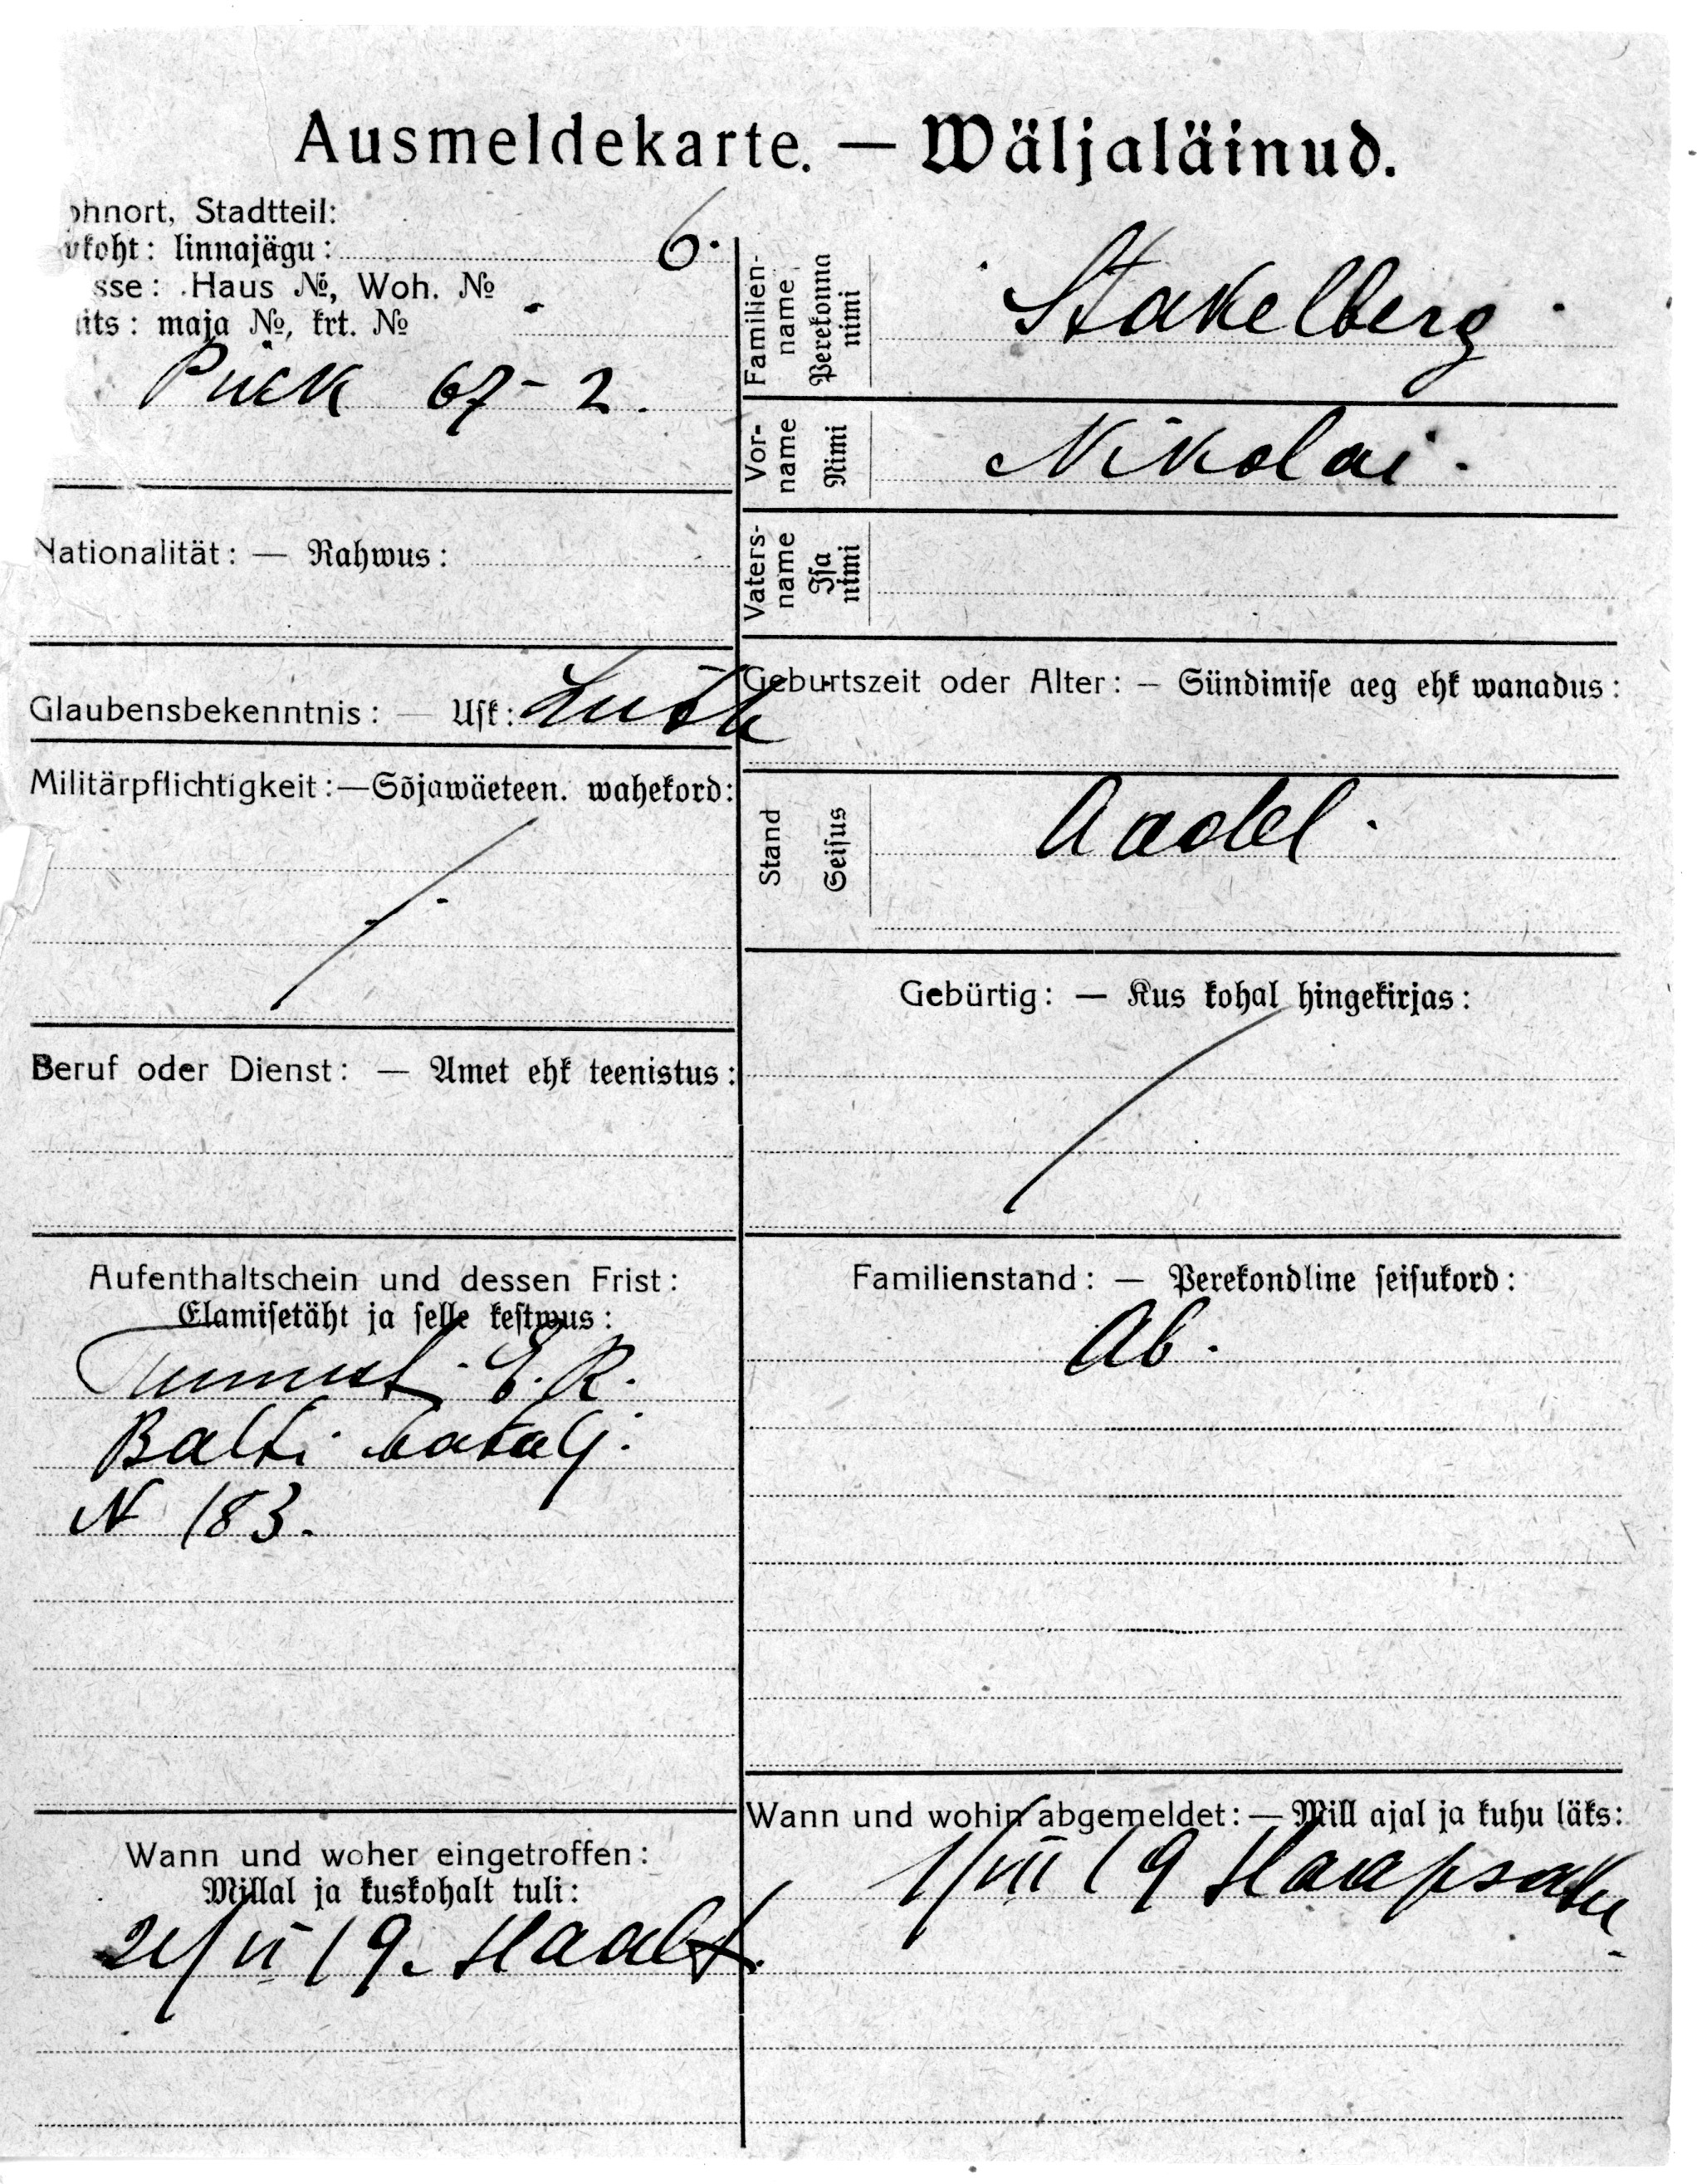 Ausmeldekarte. — Wäljaläinud.
ohnort, Stadtteil:
ukoht: linnajägu: 6.
sse: Haus №, Woh. №
uits: maja №, krt. №
Pikk 67-2.
Nationalität: — Rahwus:
Glaubensbekenntnis: — Usk: Luth
Militärpflichtigkeit: — Sõjawäeteen. wahekord:
Beruf oder Dienst: — Amet ehk teenistus:
Aufenthaltschein und dessen Frist:
Elamisetäht ja selle kestwus:
Tunnist. E. R.
Balti batalj.
N 183.
Wann und woher eingetroffen:
Millal ja kuskohalt tuli:
21/VI 19.
Familien-
name
Perekonna
nimi
Stakelberg
Vor-
name
Nimi
Nikolai.
Vaters-
name
Isa
nimi
Geburtszeit oder Alter: — Sündimise aeg ehk wanadus:
Stand
Seisus
Aadel.
Gebürtig: — Kus kohal hingekirjas:
Familienstand: — Perekondline seisukord:
Ab.
Wann und wohin abgemeldet: — Mill ajal ja kuhu läks:
1/VII 19 Haapsalu